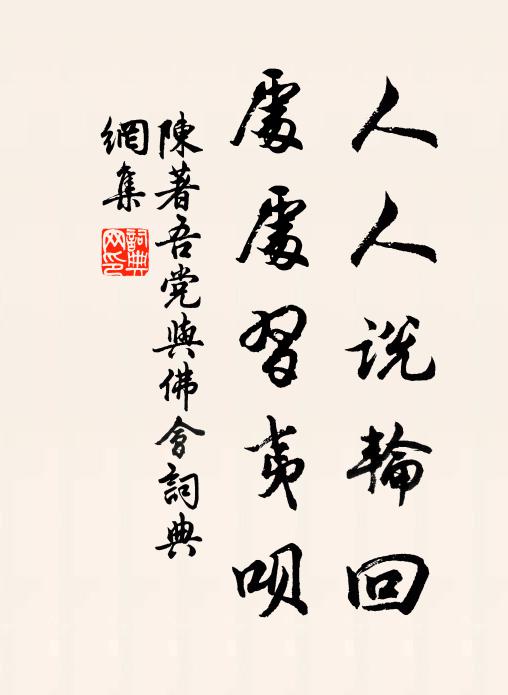 人人說輪回
處處習夷唄
陳著吾党與佛會詞典
網集
詞典
网印